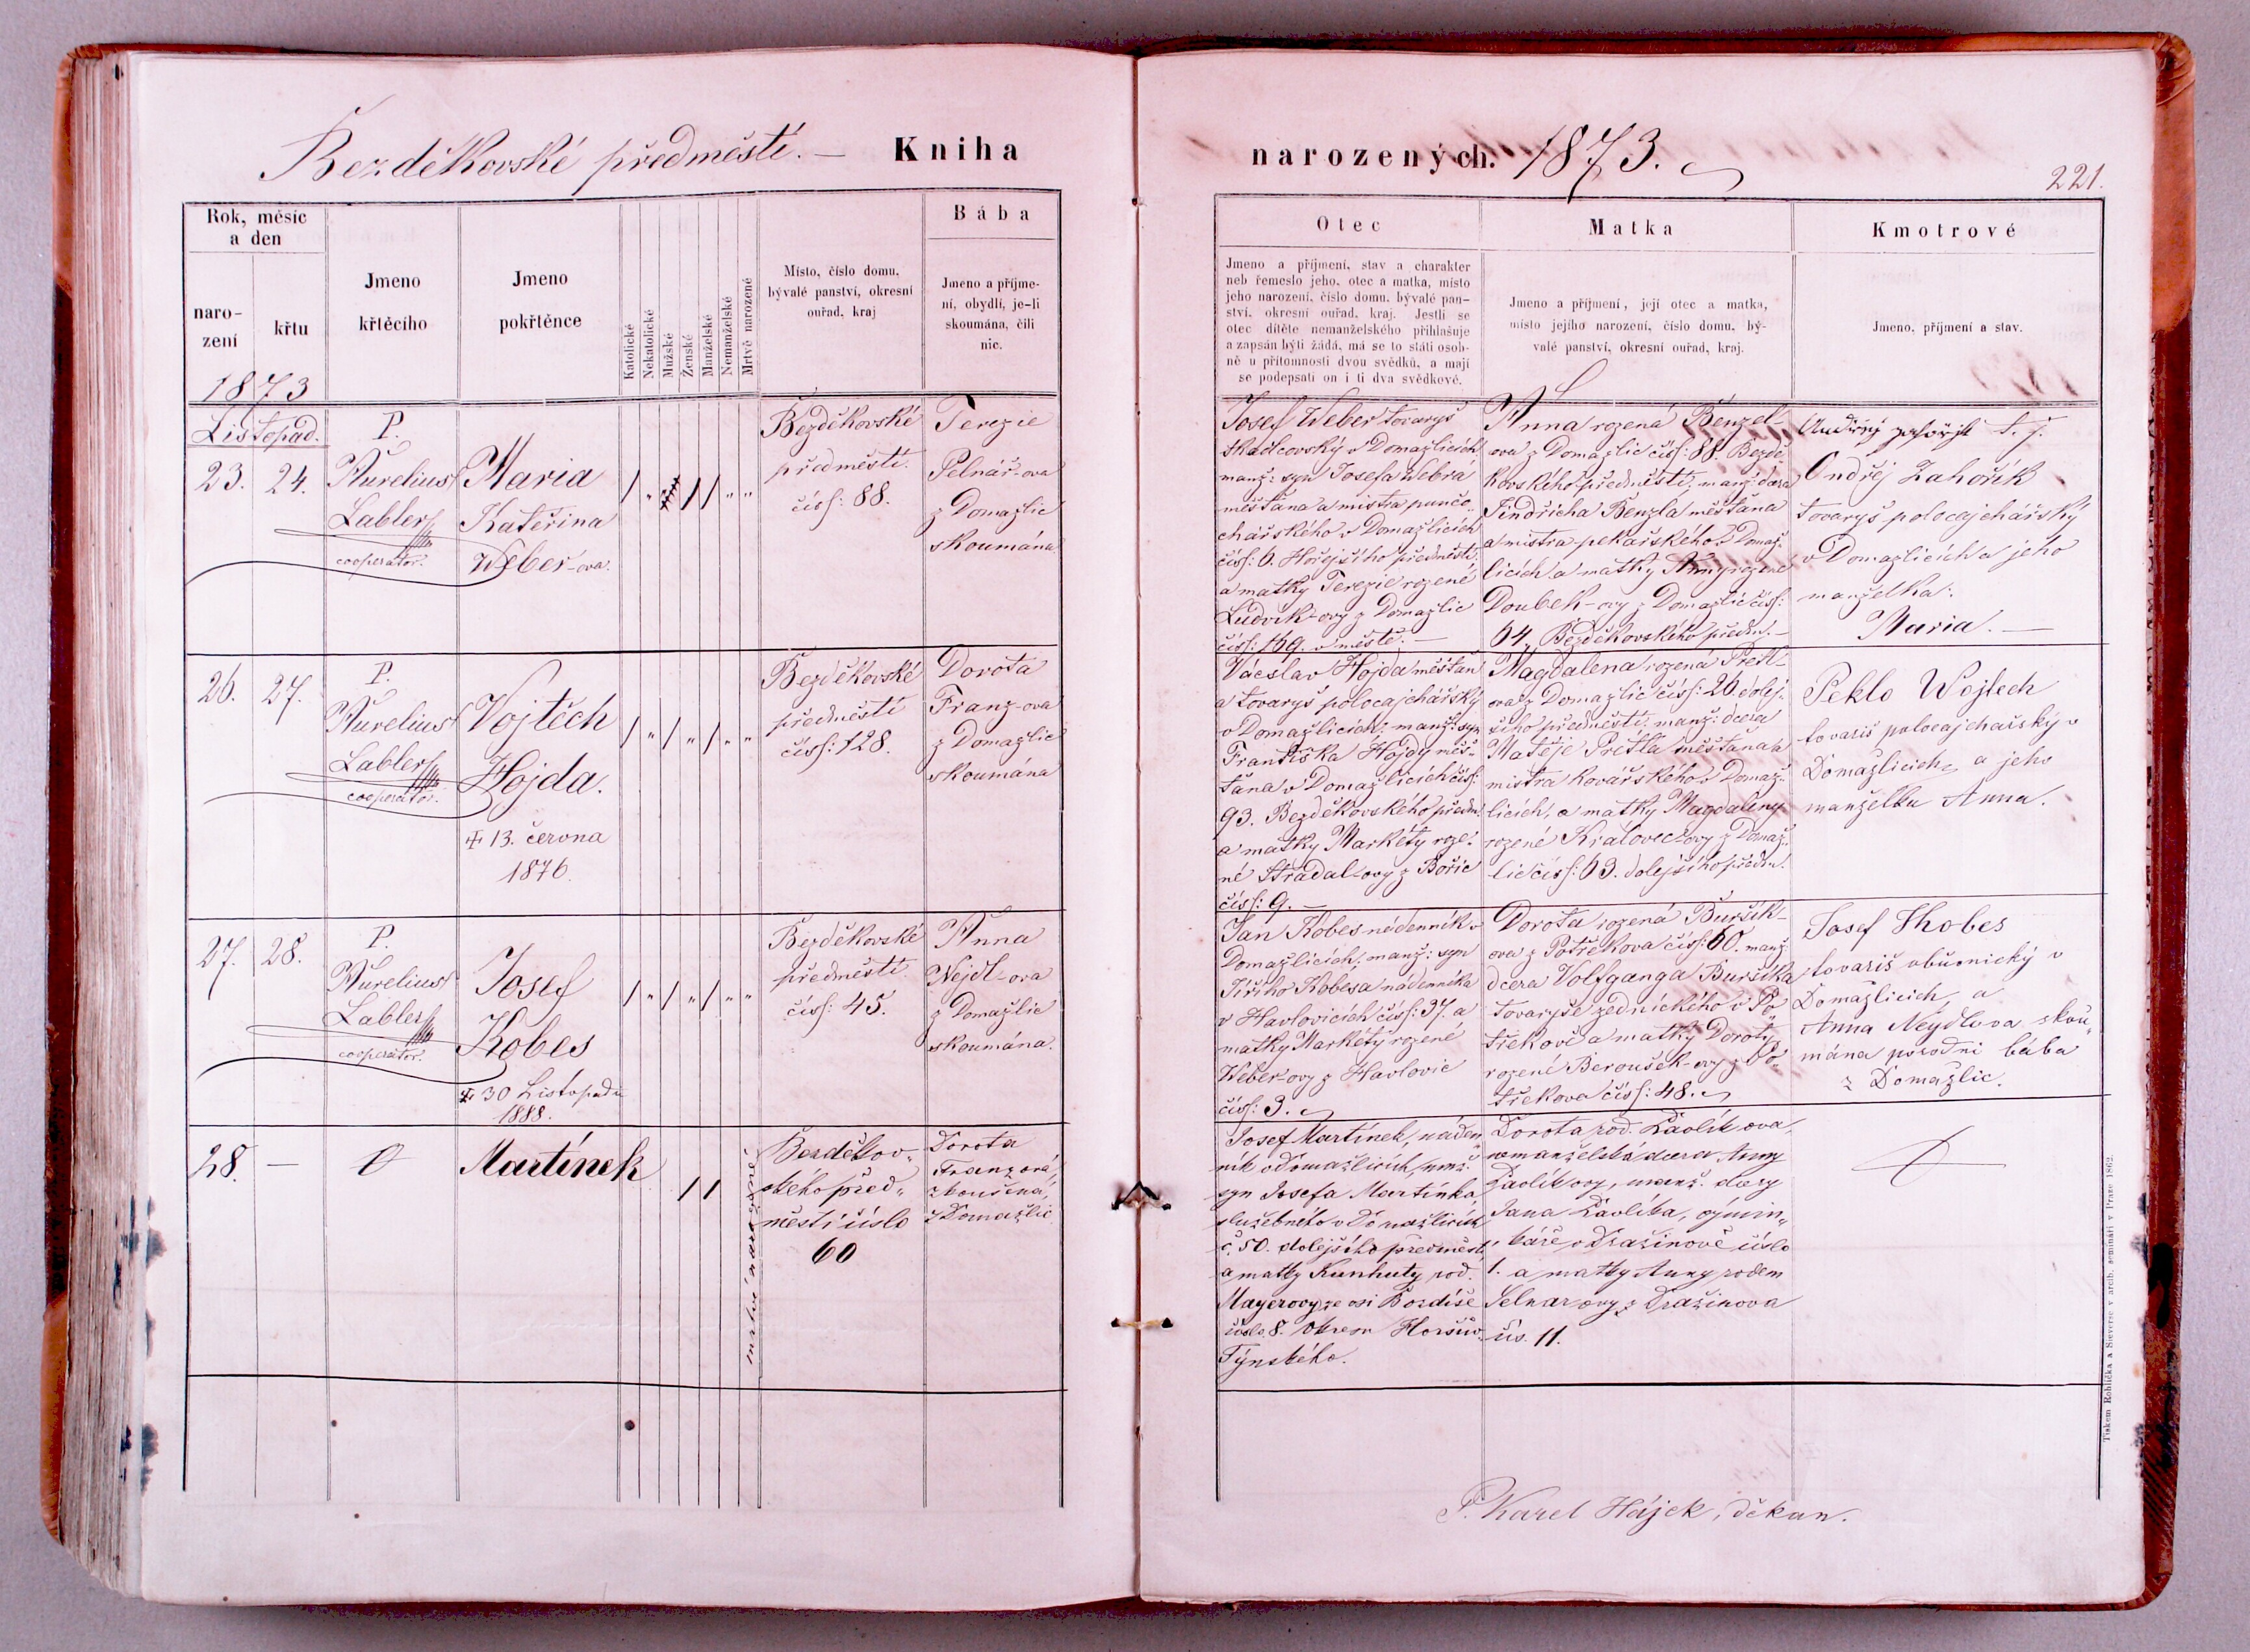 Bezděkovské předměstí. — Kniha
narozených. 1873.
221.
Rok, měsíc
a den
naro-
zení
křtu
Jmeno
křtěcího
Jmeno
pokřtěnce
Katolické
Nekatolické
Mužské
Ženské
Manželské
Nemanželské
Mrtvě narozené
Místo, číslo domu,
bývalé panství, okresní
ouřad, kraj
Bába
Jmeno a příjme-
ní, obydlí, je-li
skoumána, čili
nic.
Otec
Jmeno a příjmení, stav a charakter
neb řemeslo jeho, otec a matka, místo
jeho narození, číslo domu, bývalé pan-
ství, okresní ouřad, kraj. Jestli se
otec dítěte nemanželského přihlašuje
a zapsán býti žádá, má se to státi osob-
ně u přítomnosti dvou svědků, a mají
se podepsati on i ti dva svědkové.
Matka
Jmeno a příjmení, její otec a matka,
místo jejího narození, číslo domu, bý-
valé panství, okresní ouřad, kraj.
Kmotrové
Jmeno, příjmení a stav.
1873
Listopad.
23. 24.
P.
Aurelius
Labler
cooperator.
Maria
Kateřina
Weber-ova.
Bezděkovské
předměstí.
čísl: 88.
Terezie
Pelnář-ova
z Domažlic
skoumána
Josef Weber tovaryš
tkadlcovský v Domažlicích
manž: syn Josefa Webra
měšťana a mistra punčo-
chářského v Domažlicích
čísl: 6. Hořejšího předměstí.
a matky Terezie rozené
Ludvik-ovy z Domažlic
čísl: 169. v městě. —
Anna rozená Benzel-
ova z Domažlic čísl: 88. Bezdě-
kovského předměstí, manž: dcera
Jindřicha Benzla měšťana
a mistra pekařského v Domaž-
licích a matky Anny rozené
Doubek-ovy z Domažlic čísl:
64, Bezděkovského předm. —
Ondřej Zahořík
tovaryš polocajchářský
v Domažlicích a jeho
manželka:
Maria. —
26. 27.
P.
Aurelius
Labler
cooperator.
Vojtěch
Hojda.
13. června
1876.
Bezděkovské
předměstí
čísl: 128.
Dorota
Franz-ova
z Domažlic
skoumána
Václav Hojda měšťan
a tovaryš polocajchářský
v Domažlicích, manž: syn
Františka Hojdy měš-
ťana v Domažlicích čísl:
93. Bezděkovského předm.
a matky Markéty roze-
né Stradal-ovy z Bořic
čísl: 9. —
Magdalena rozená Pretl-
ova z Domažlic čísl: 26. dolej-
šího předměstí, manž: dcera
Matěje Pretla měšťana a
mistra kovářského v Domaž-
licích, a matky Magdaleny
rozené Královec-ovy z Domaž-
lic čísl: 63. dolejšího předm.
Peklo Wojtech
tovariš polocajchařský v
Domažlicich, a jeho
manželka Anna.
27. 28.
P.
Aurelius
Labler
cooperator.
Josef
Kobes
30 Listopadu
1888.
Bezděkovské
předměstí
čísl: 45.
Anna
Nejdl-ova
z Domažlic
skoumána.
Jan Kobes nádenník v
Domažlicích, manž: syn
Jiřího Kobesa nádenníka
v Havlovicích čísl: 37. a
matky Markéty rozené
Weber-ovy z Havlovic
čísl: 3.
Dorota rozená Buršík-
ova z Potřekova čísl: 60. manž:
dcera Volfganga Buršíka
tovaryše zednického v Po-
třekově a matky Doroty
rozené Beroušek-ovy z Po-
třekova čísl: 48.
Josef Kobes
tovariš obuvnický v
Domažlicich, a
Anna Neydlova skou-
mána porodni bába
z Domažlic.
28. —
0
Martínek
mrtvě narozené
Bezděkov-
ského před-
městí číslo
60
Dorota
Franzová,
zkoušená,
z Domažlic
Josef Martínek, náden-
ník v Domažlicích, nmž.
syn Josefa Martínka,
služebného v Domažlicích
č. 50. dolejšího předměstí
a matky Kunhuty rod.
Mayerovy ze vsi
číslo 8. okresu Horšův-
Týnského.
Dorota rod. Pavlík ova,
nemanželská dcera Anny
Pavlíkovy, manž. dcery
Jana Pavlíka,
v Dražinově číslo
1. a matky Anny rodem
z Dražinova
čís. 11.
P. Karel Hájek, děkan.
Tiskem Rohlíčka a Sieverse v arcib. semináři v Praze 1862.